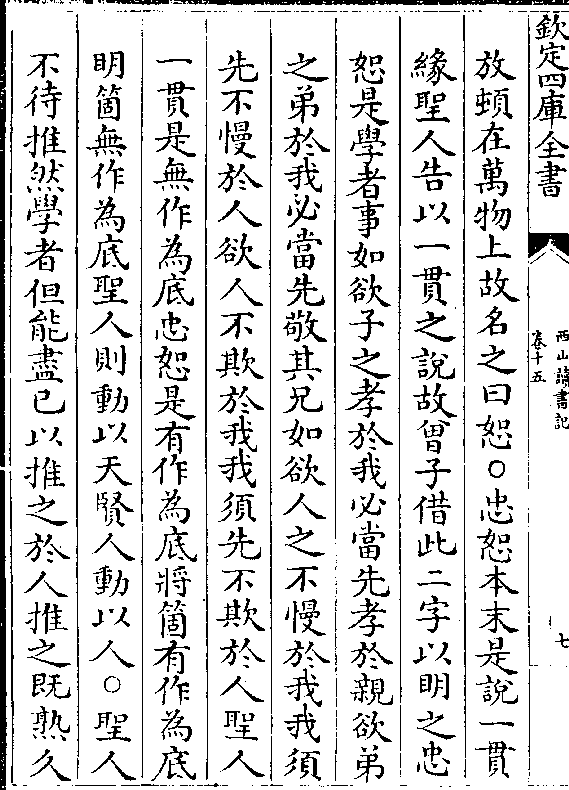 欽定四庫全書
西山讀書記
卷十五
七
放頓在萬物上故名之曰恕○忠恕本末是說一貫
緣聖人告以一貫之說故曾子借此二字以明之忠
恕是學者事如欲子之孝於我必當先孝於親欲弟
之弟於我必當先敬其兄如欲人之不慢於我我須
先不慢於人欲人不欺於我我須先不欺於人聖人
一貫是無作為底忠恕是有作為底將箇有作為底
明箇無作為底聖人則動以天賢人動以人○聖人
不待推然學者但能盡已以推之於人推之既熟久